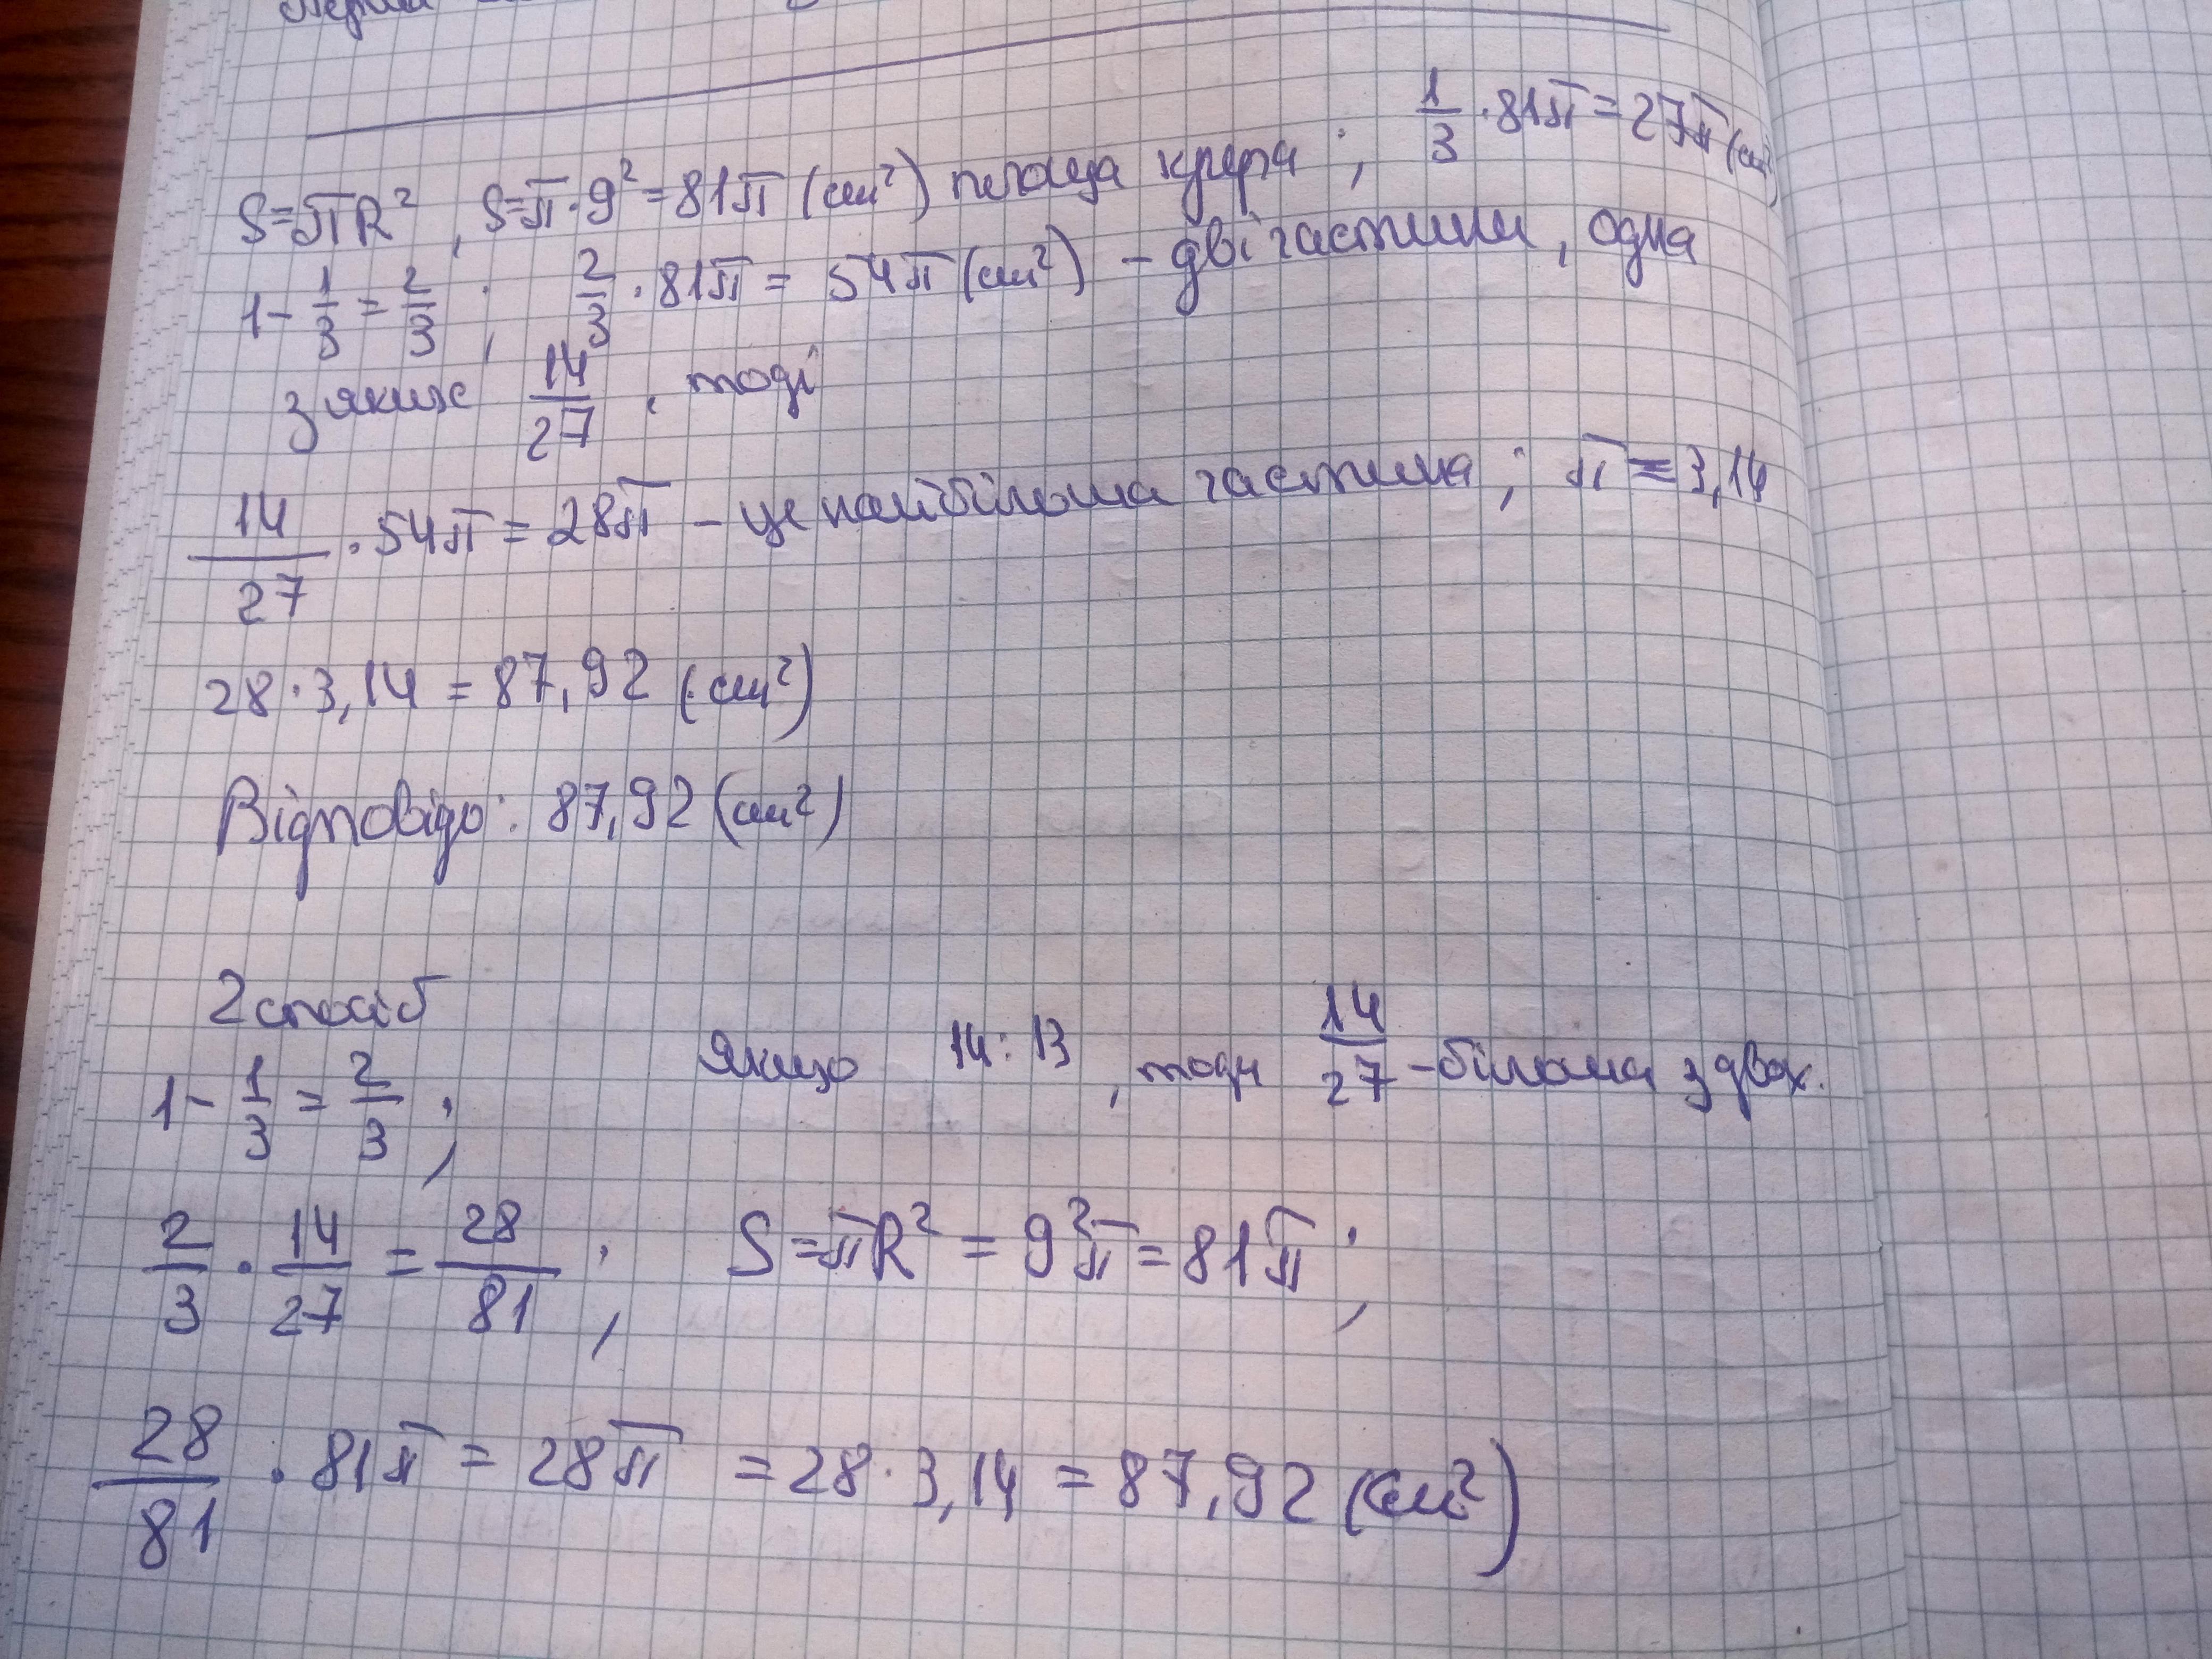 S=πR², S=π·9²=81π (см²) площа круга; 1/3·81π=27π(см²)
1-1/3=2/3; 2/3·81π=54π(см²) - дві частини, одна
з яких 14/27, тоді
14/27·54π=28π - це найбільша частина; π≈3,14
28·3,14=87,92 (см²)
Відповідь: 87,92 (см²)
2 спосіб
1-1/3=2/3; Якщо 14:13, тоді 14/27-більша з двох.
2/3·14/27=28/81; S=πR²=9²π=81π;
28/81·81π=28π=28·3,14=87,92 (см²)